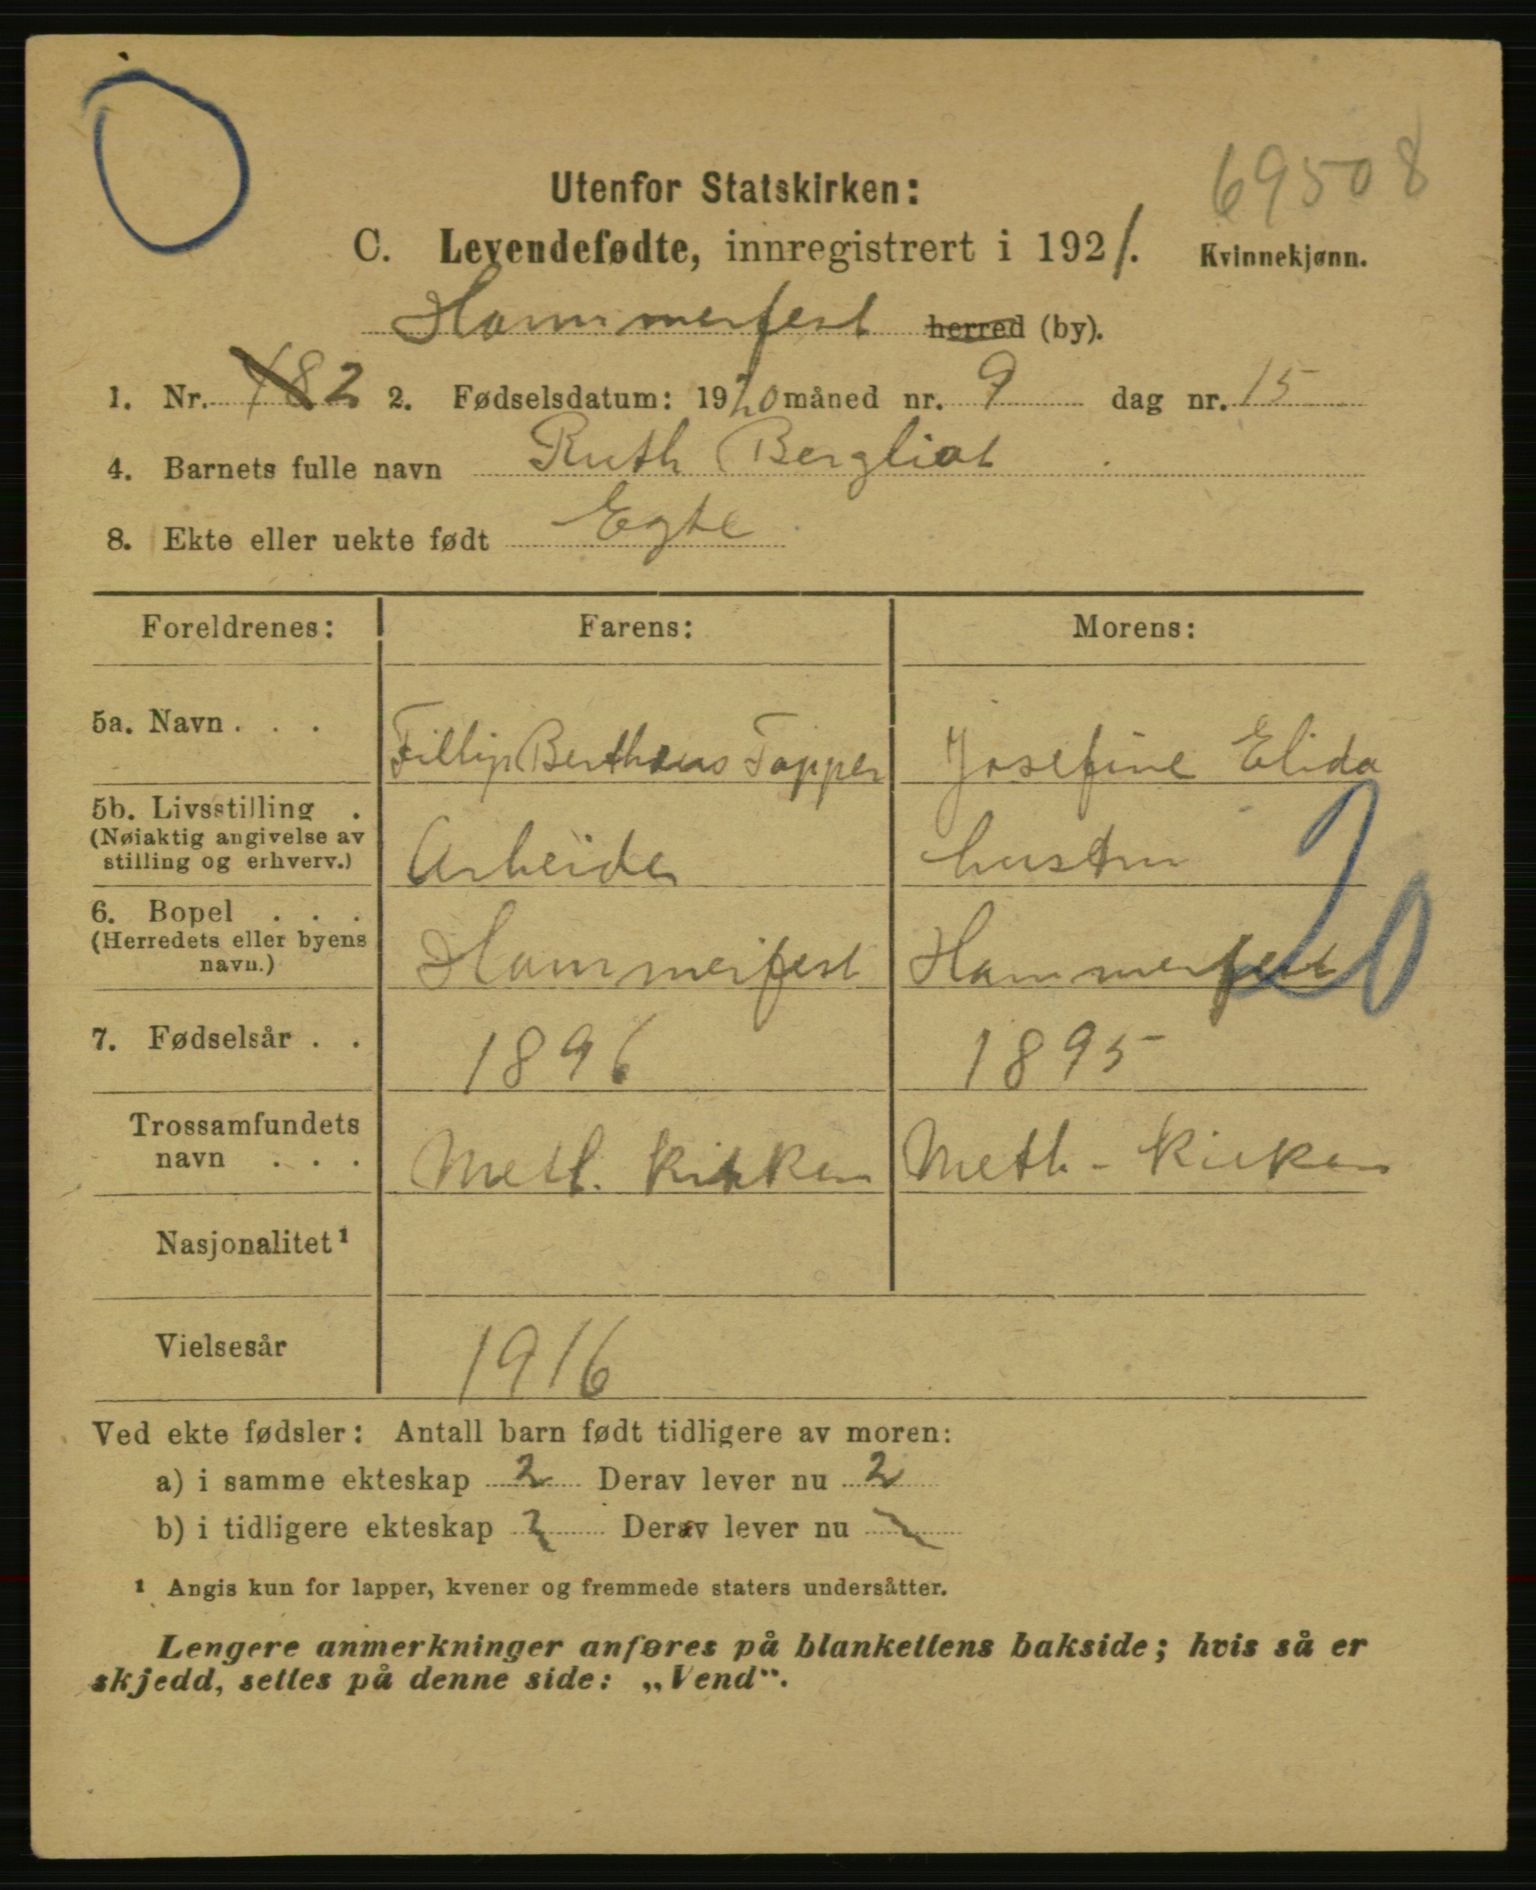 69508
Utenfor Statskirken:
C. Levendefødte, innregistrert i 1921. Kvinnekjønn.
Hammerfest herred (by).
1. Nr. 2 2. Fødselsdatum: 1920 måned nr. 9 dag nr. 15
4. Barnets fulle navn Ruth Bergliot
8. Ekte eller uekte født Egte
Foreldrenes: Farens: Morens:
5a. Navn . . . Fillip Bertheus Tapper Josefine Elida
5b. Livsstilling .
(Nøiaktig angivelse av
stilling og erhverv.) Arbeider hustru
20
6. Bopel . . .
(Herredets eller byens
navn.) Hammerfest Hammerfest
7. Fødselsår . . 1896 1895
Trossamfundets
navn . . . Meth. Kirken Meth - Kirken
Nasjonalitet¹
Vielsesår 1916
Ved ekte fødsler: Antall barn født tidligere av moren:
a) i samme ekteskap 2 Derav lever nu 2
b) i tidligere ekteskap Derav lever nu
¹ Angis kun for lapper, kvener og fremmede staters undersåtter.
Lengere anmerkninger anføres på blankettens bakside; hvis så er
skjedd, settes på denne side: „Vend".